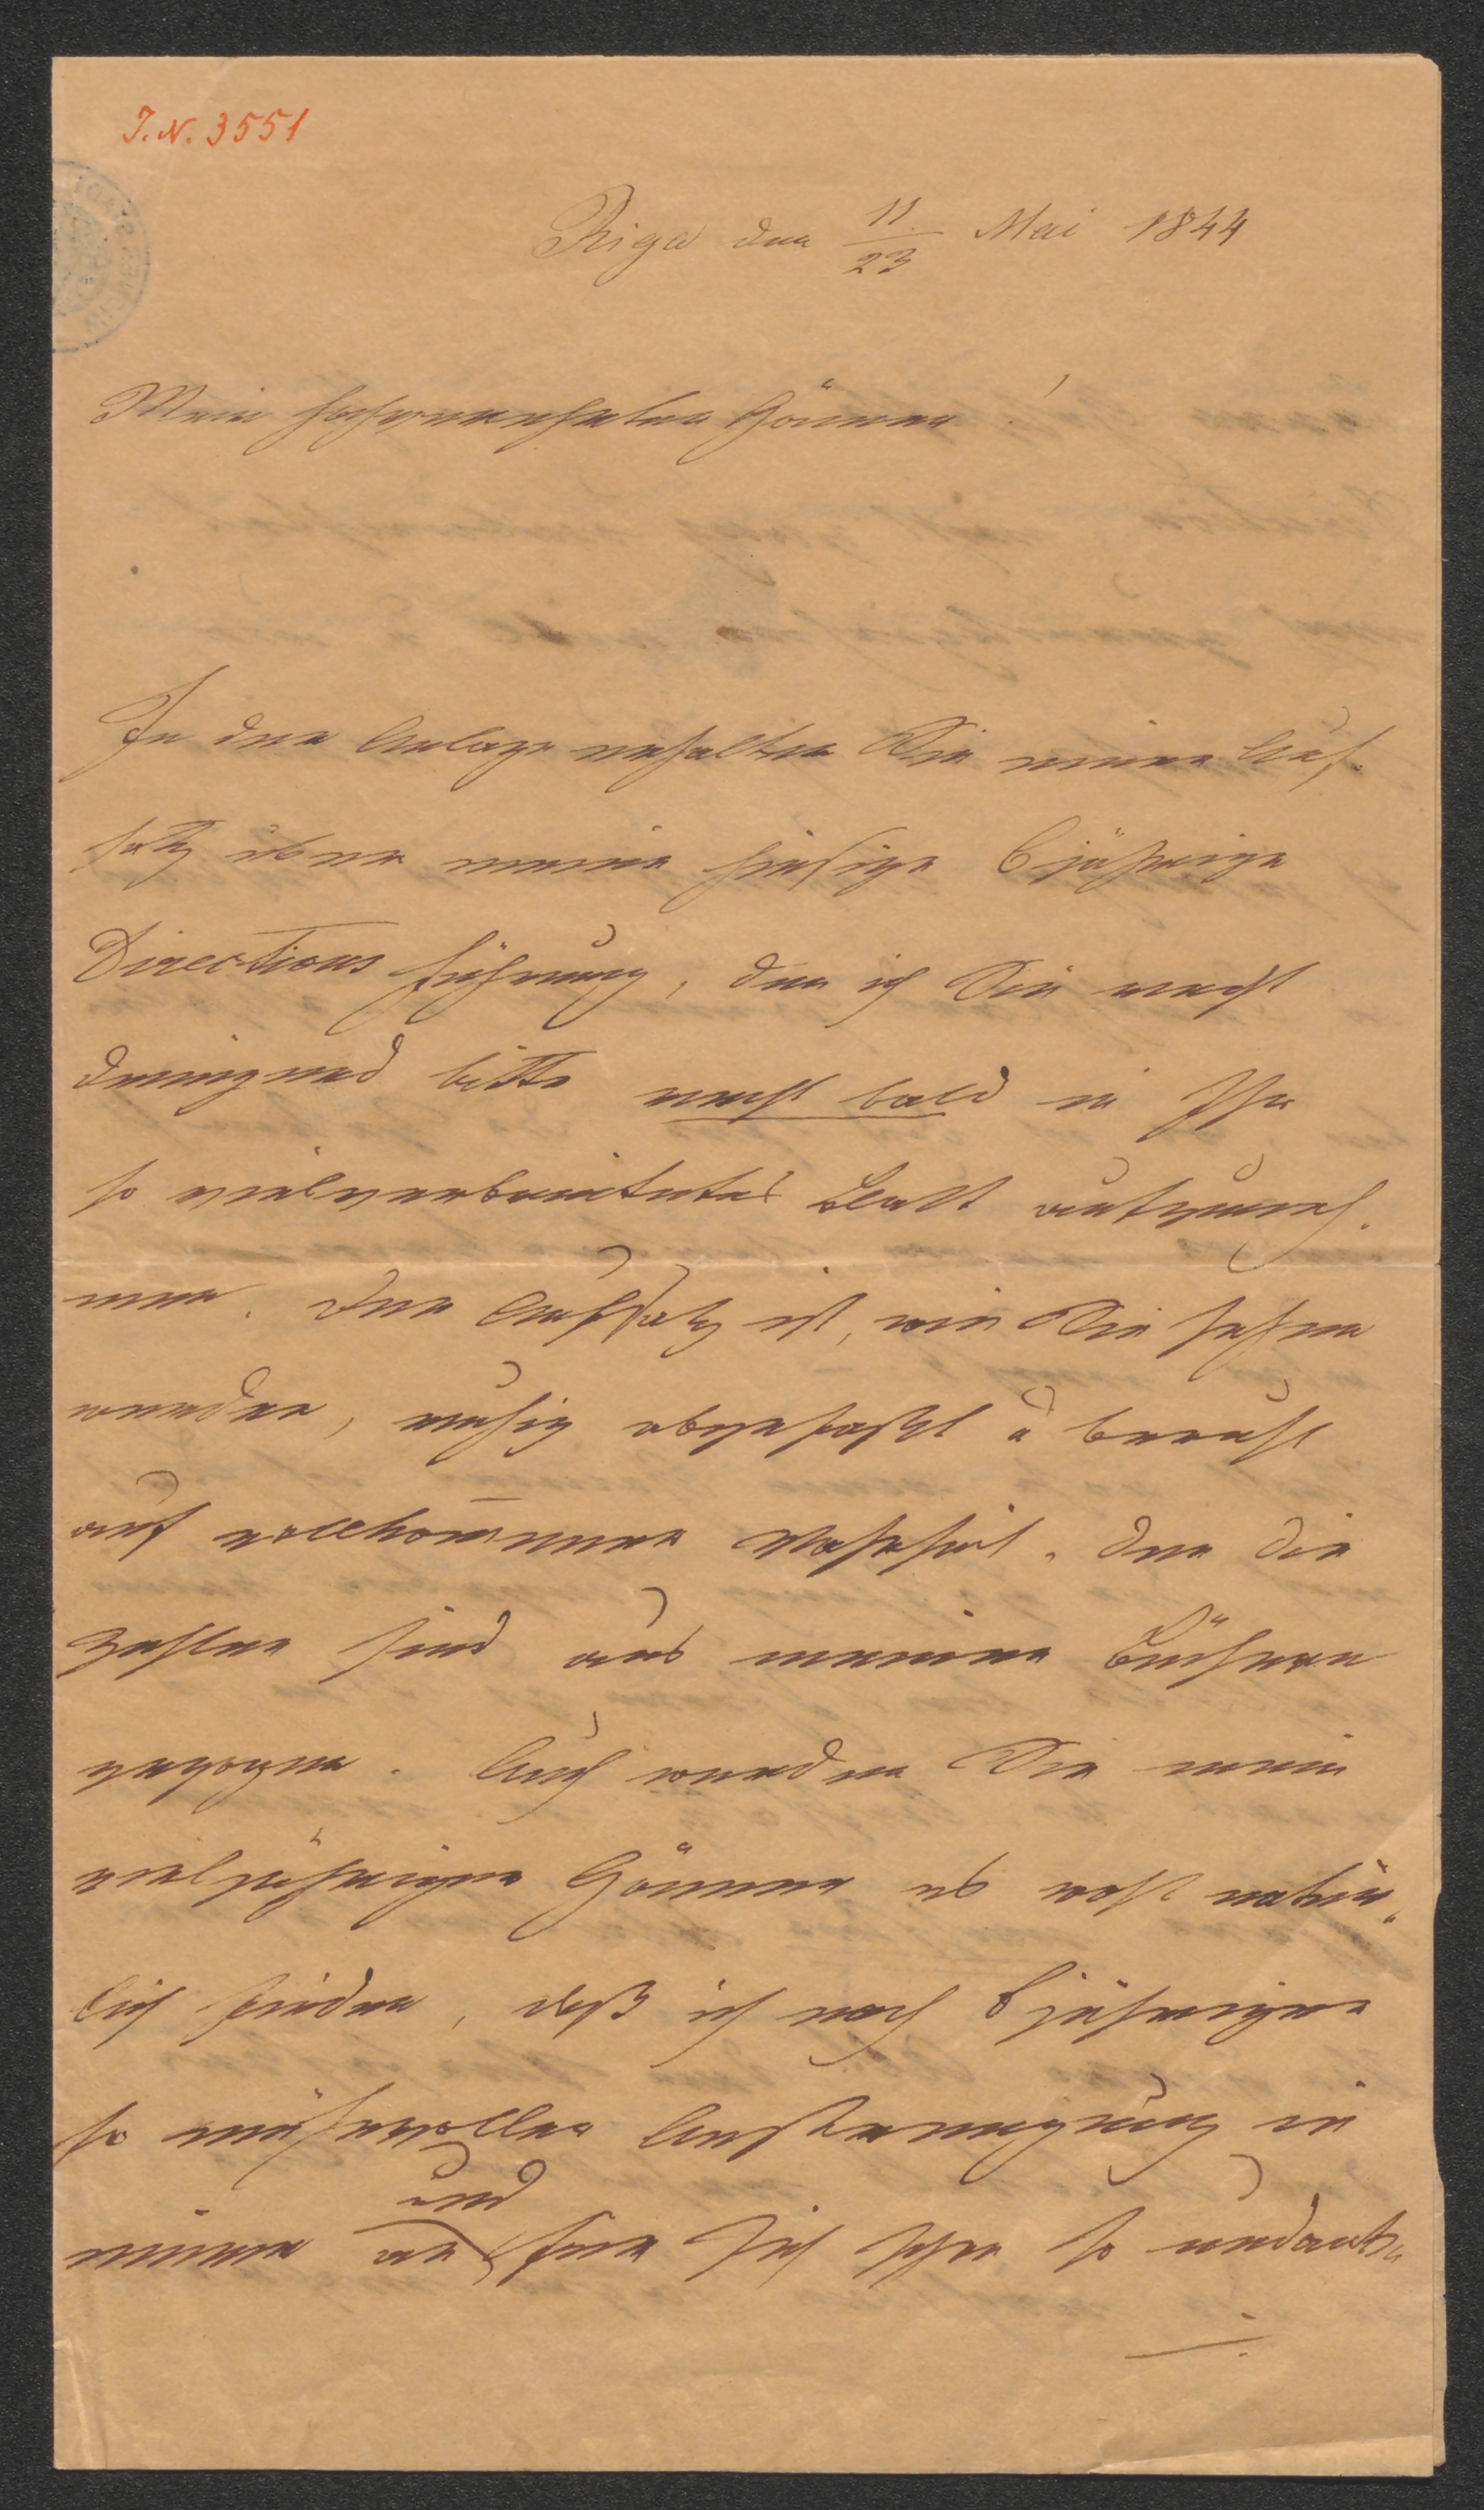 J. N. 3551
Riga den 11/23 Mai 1844
Mein hochverehrter Gönner!
In der Anlage erhalten Sie einen Auf-
satz über meine hiesige 6jährige
Directionsführung, den ich Sie recht
dringend bitte recht bald in Ihr
so vielverbreitetes Blatt aufzuneh-
men. Der Aufsatz ist, wie Sie sehen
werden, ruhig abgefaßt u beruht
auf vollkommener Wahrheit, den die
Zahlen sind aus meinen Büchern
gezogen. Auch werden Sie mein
vieljähriger Gönner es wohl natür-
lich finden, daß ich nach 6jähriger
so mühevoller Anstrengung in
einem an und für sich schon so undank-